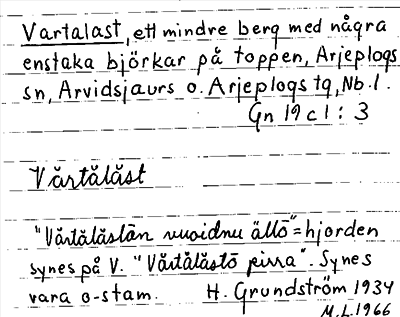 Vartalast, ett mindre berg med några
enstaka björkar på toppen, Arjeplogs
sn, Arvidsjaurs o. Arjeplogs tg, Nb. l.
Gn 19 c 1 : 3
Vårtålåst
"Vårtålåstån vuoidnu ällö" = hjorden
synes på V. "Vårtålåstō pirra". Synes
vara o-stam. H. Grundström 1934
M.L. 1966